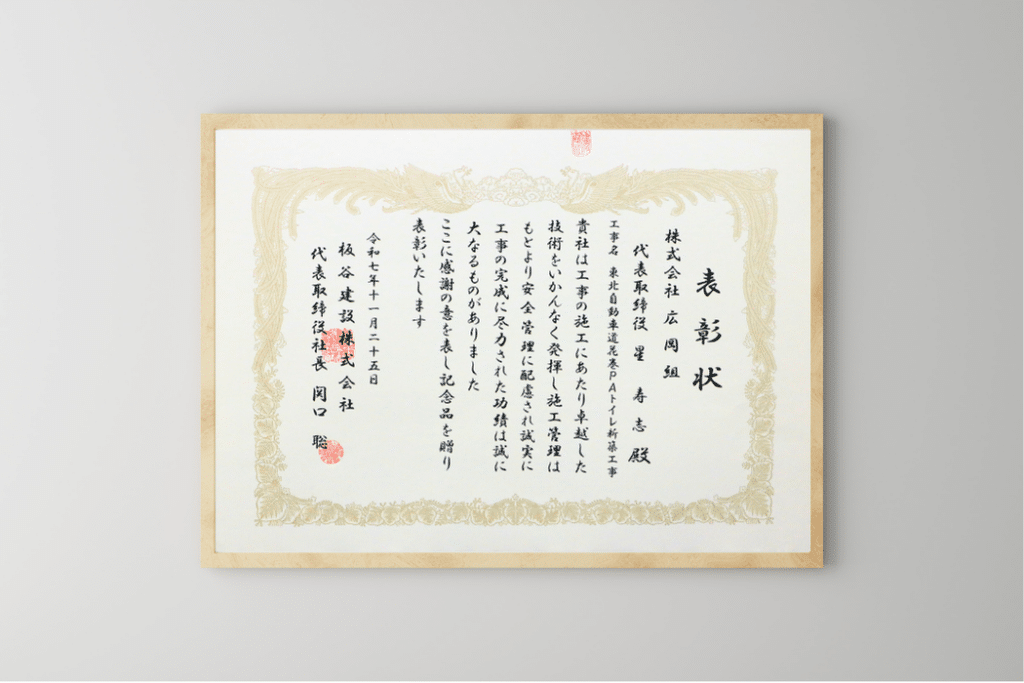 表彰状
株式会社広岡組
代表取締役 星 寿志 殿
工事名 東北自動車道花巻PAトイレ新築工事
貴社は工事の施工にあたり卓越した
技術をいかんなく発揮し施工管理は
もとより安全管理に配慮され誠実に
工事の完成に尽力された功績は誠に
大なるものがありました
ここに感謝の意を表し記念品を贈り
表彰いたします
令和七年十一月二十五日
板谷建設株式会社
代表取締役社長 関口 聡